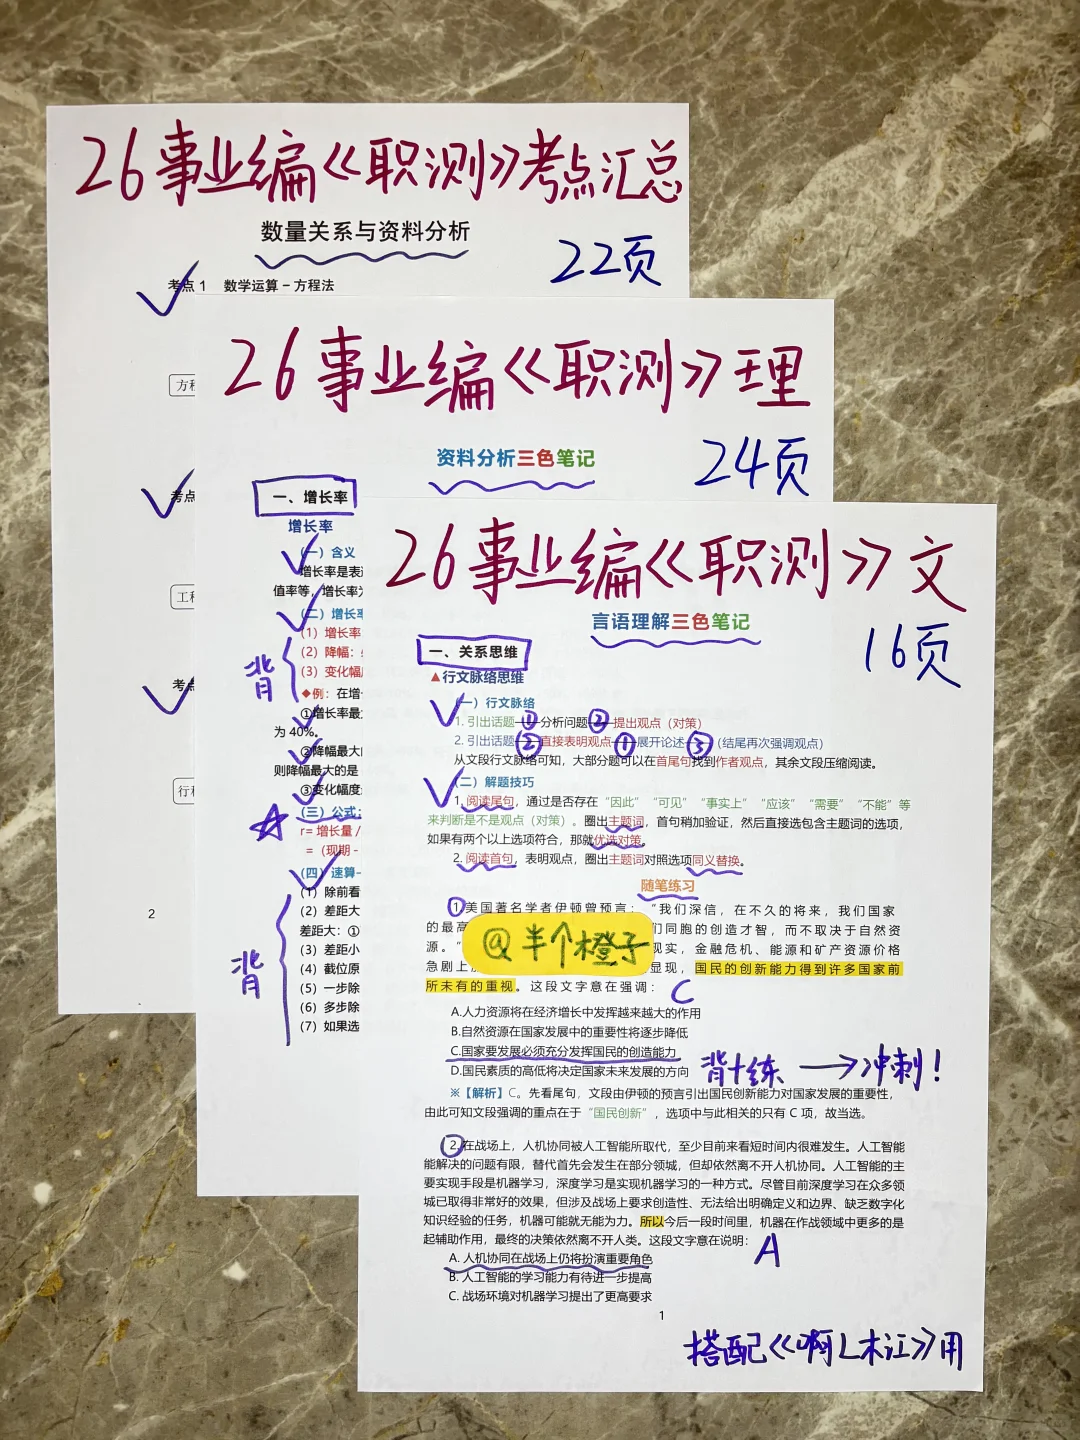 26事业编《职测》考点汇总
数量关系与资料分析
22页
考点1 数学运算－方程法
方程
考点
工程
考点
行程
2
26事业编《职测》理
24页
资料分析三色笔记
一、增长率
增长率
（一）含义
增长率是表
值率等，增长率为
（二）增长率
（1）增长率
（2）降幅：
（3）变化幅
背
◆例：在增
①增长率最大
为 40%。
②降幅最大
则降幅最大的是
③变化幅度
（三）公式：
r= 增长量 /
=（现期 -
（四）速算
（1）除前看
（2）差距大
差距大：①
（3）差距小
（4）截位原
（5）一步除
（6）多步除
（7）如果选
背
26事业编《职测》文
16页
言语理解三色笔记
一、关系思维
▲行文脉络思维
（一）行文脉络
1. 引出话题—①分析问题—②提出观点（对策）
2. 引出话题—②直接表明观点—①展开论述—③（结尾再次强调观点）
从文段行文脉络可知，大部分题可以在首尾句找到作者观点，其余文段压缩阅读。
（二）解题技巧
1. 阅读尾句，通过是否存在“因此”“可见”“事实上”“应该”“需要”“不能”等
来判断是不是观点（对策）。圈出主题词，首句稍加验证，然后直接选包含主题词的选项，
如果有两个以上选项符合，那就优选对策。
2. 阅读首句，表明观点，圈出主题词对照选项同义替换。
随笔练习
1.美国著名学者伊顿曾预言：“我们深信，在不久的将来，我们国家
的最高 们同胞的创造才智，而不取决于自然资
源。” 现实，金融危机、能源和矿产资源价格
急剧上 显现，国民的创新能力得到许多国家前
所未有的重视。这段文字意在强调：
C
@半个橙子
A.人力资源将在经济增长中发挥越来越大的作用
B.自然资源在国家发展中的重要性将逐步降低
C.国家要发展必须充分发挥国民的创造能力
D.国民素质的高低将决定国家未来发展的方向
背+练→冲刺！
※【解析】C。先看尾句，文段由伊顿的预言引出国民创新能力对国家发展的重要性，
由此可知文段强调的重点在于“国民创新”，选项中与此相关的只有 C 项，故当选。
2.在战场上，人机协同被人工智能所取代，至少目前来看短时间内很难发生。人工智能
能解决的问题有限，替代首先会发生在部分领域，但却依然离不开人机协同。人工智能的主
要实现手段是机器学习，深度学习是实现机器学习的一种方式。尽管目前深度学习在众多领
域已取得非常好的效果，但涉及战场上要求创造性、无法给出明确定义和边界、缺乏数字化
知识经验的任务，机器可能就无能为力。所以今后一段时间里，机器在作战领域中更多的是
起辅助作用，最终的决策依然离不开人类。这段文字意在说明：
A
A. 人机协同在战场上仍将扮演重要角色
B. 人工智能的学习能力有待进一步提高
C. 战场环境对机器学习提出了更高要求
1
搭配《啊L木江》用